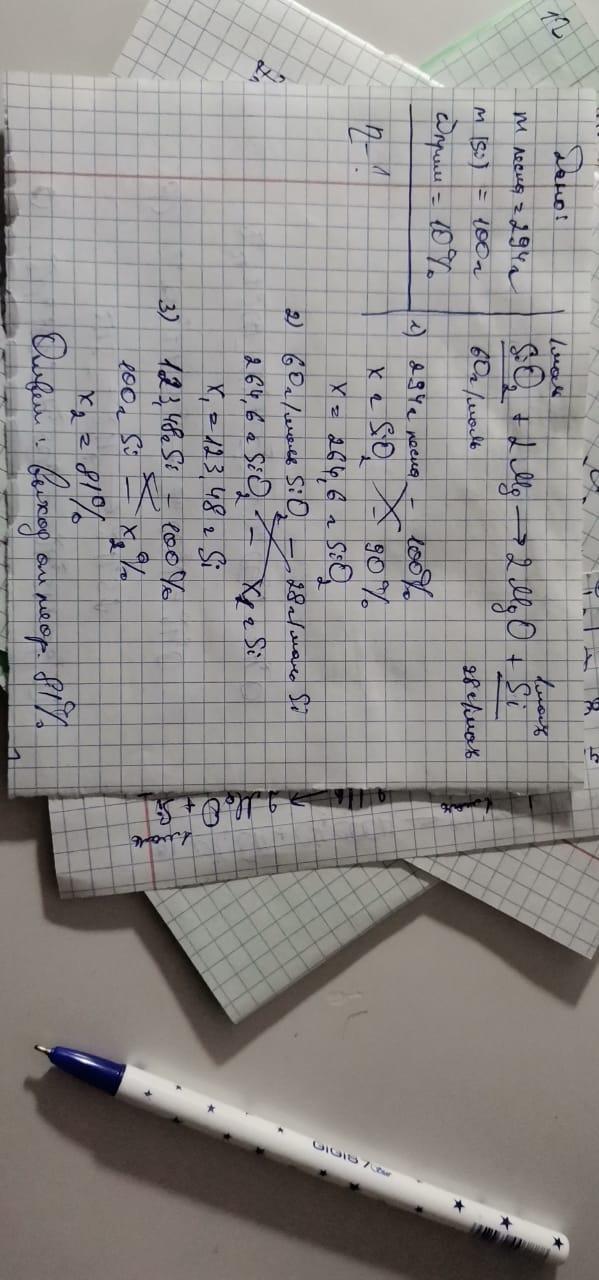 Дано:
m песка = 294 г
m (Si) = 100 г
ω прим = 10%
η - ?
1 моль 1 моль
SiO₂ + 2 Mg → 2 MgO + Si
60 г/моль 28 г/моль
1) 294 г песка – 100%
x г SiO₂ – 90%
x = 264,6 г SiO₂
2) 60 г/моль SiO₂ — 28 г/моль Si
264,6 г SiO₂ — x₁ г Si
x₁ = 123,48 г Si
3) 123,48 г Si – 100%
100 г Si – x₂%
x₂ = 81%
Ответ: Выход от теор. 81%
12
2 MgO + Si
1 моль
GIGIS